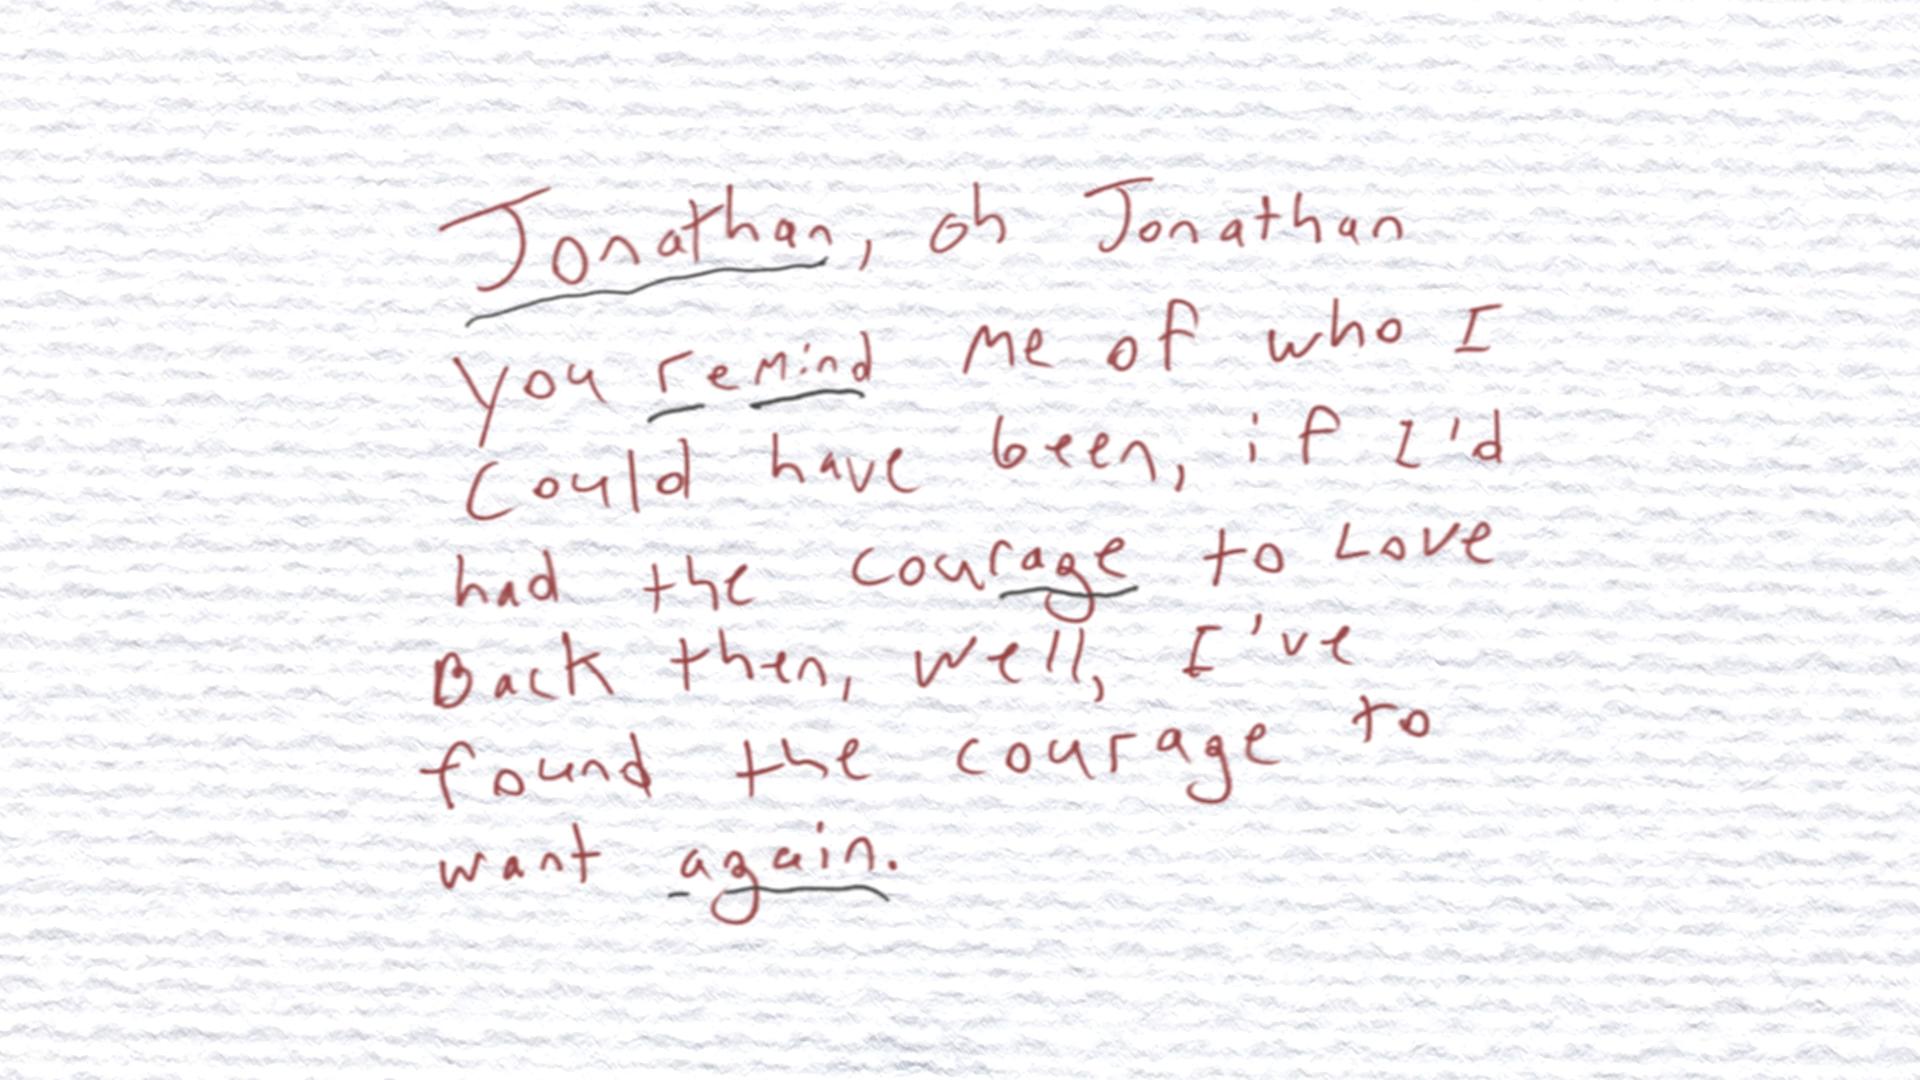 Jonathan, oh Jonathan
you remind me of who I
Could have been, if I'd
had the courage to Love
Back then, well, I've
found the courage to
want again.